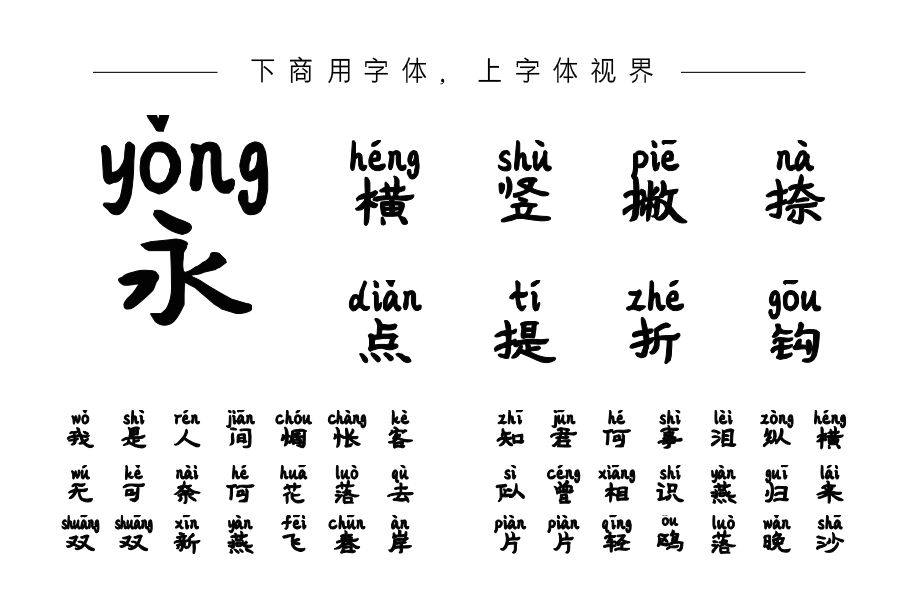 下商用字体，上字体视界
yǒng
永
héng shù piē nà
横 竖 撇 捺
diǎn tí zhé gōu
点 提 折 钩
wǒ shì rén jiān chóu chàng kè
我 是 人 间 惆 怅 客
wú kě nài hé huā luò qù
无 可 奈 何 花 落 去
shuāng shuāng xīn yàn fēi chūn àn
双 双 新 燕 飞 春 岸
zhī jūn hé shì lèi zòng héng
知 君 何 事 泪 纵 横
sì céng xiāng shí yàn guī lái
似 曾 相 识 燕 归 来
piàn piàn qīng ou luò wǎn shā
片 片 轻 鸥 落 晚 沙